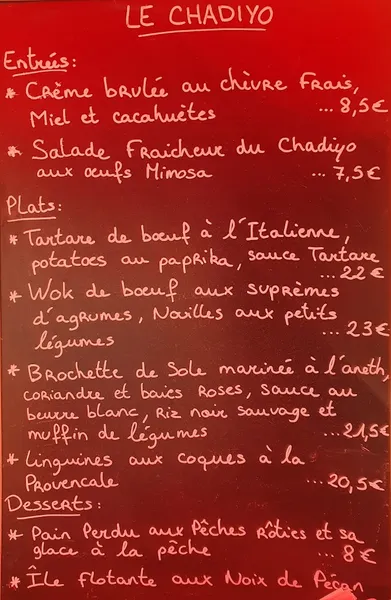 LE CHADIYO
Entrées:
* Crème brulée au chèvre Frais,
Miel et cacahuètes ... 8,5€
* Salade Fraicheur du Chadiyo
aux œufs Mimosa ... 7,5€
Plats:
* Tartare de bœuf à l'Italienne,
potatoes au paprika, sauce Tartare
... 22€
* Wok de bœuf aux suprèmes
d'agrumes, Nouilles aux petits
légumes ... 23€
* Brochette de Sole marinée à l'aneth,
coriandre et baies Roses, Sauce au
beurre blanc, Riz noir sauvage et
muffin de légumes ...21,5€
* Linguines aux coques à la
Provencale ... 20,5€
Desserts:
* Pain Perdu aux Pêches Rôties et sa
glace à la pêche ... 8€
* Île flotante aux Noix de Pécan